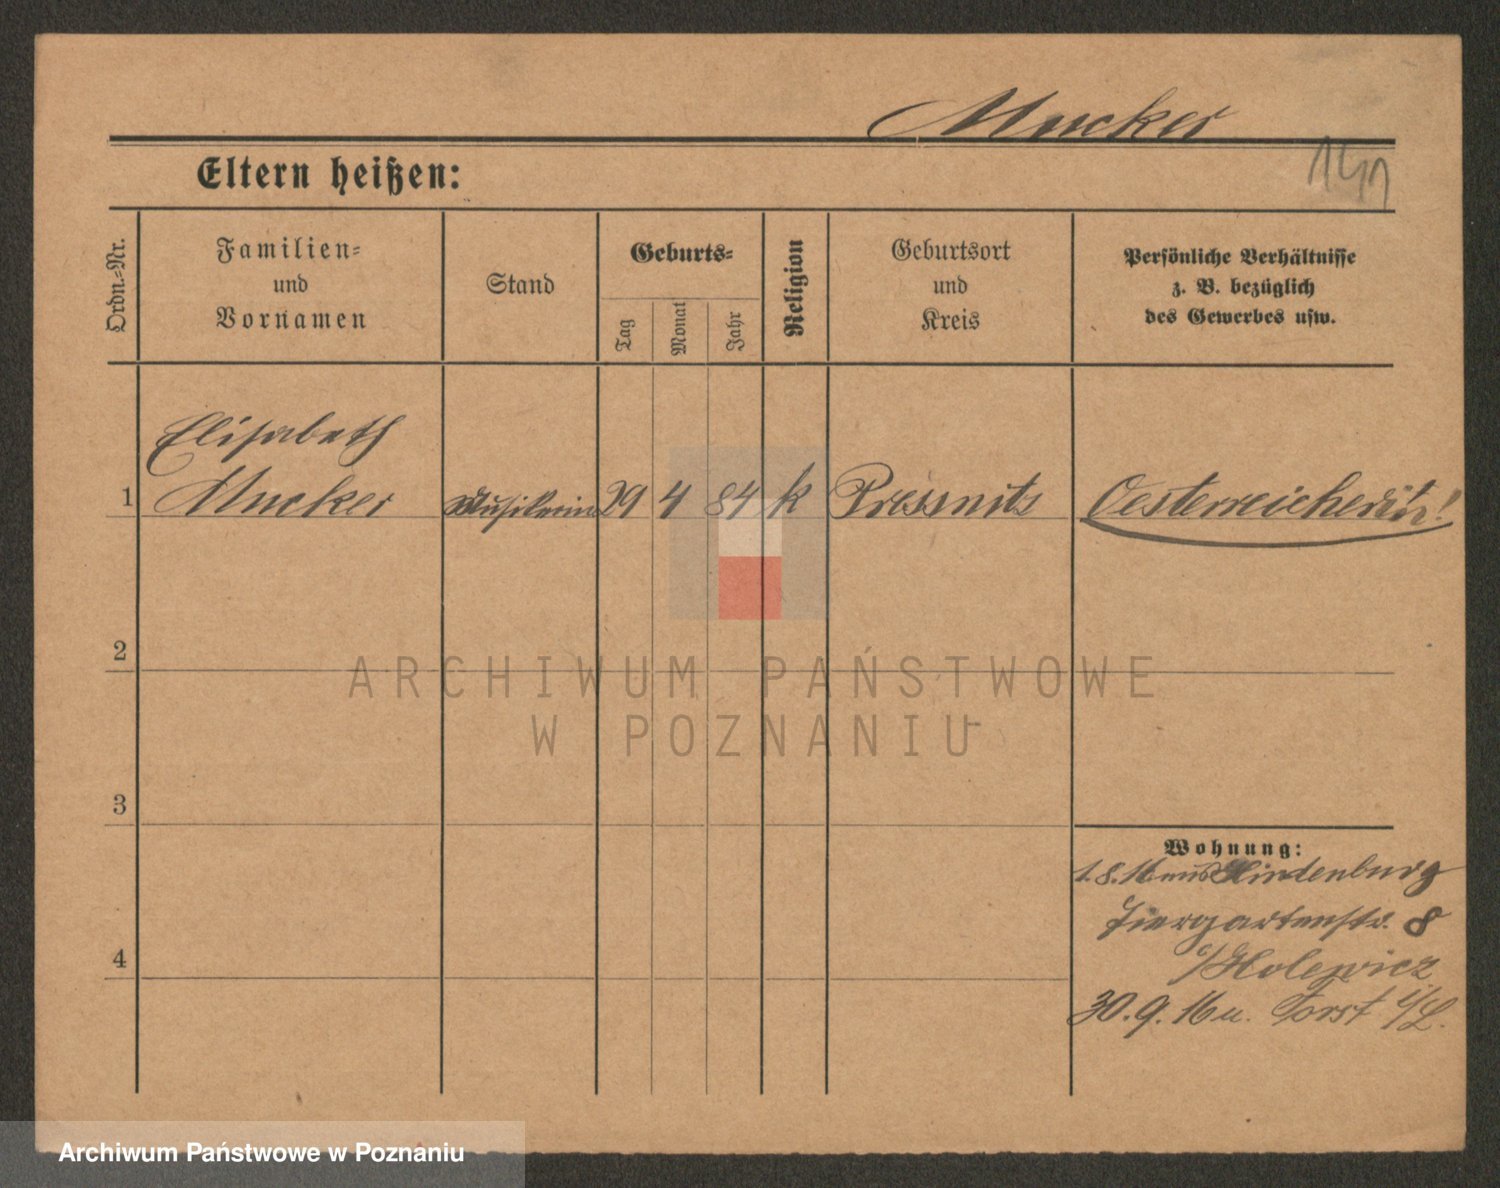 Mucker
Eltern heißen:
141
Ordn.-Nr.
Familien-
und
Vornamen
Stand
Geburts-
Tag
Monat
Jahr
Religion
Geburtsort
und
Kreis
Persönliche Verhältnisse
z. B. bezüglich
des Gewerbes usw.
Elisabeth
1 Mucker Musikerin 29 4 84 k Pressnitz Oesterreicherin!
2
ARCHIWUM PAŃSTWOWE
W POZNANIU
3
Wohnung:
1.8.16 aus Hindenburg
Tiergartenstr. 8
4
30.9.16 n. Forst i/L.
Archiwum Państwowe w Poznaniu